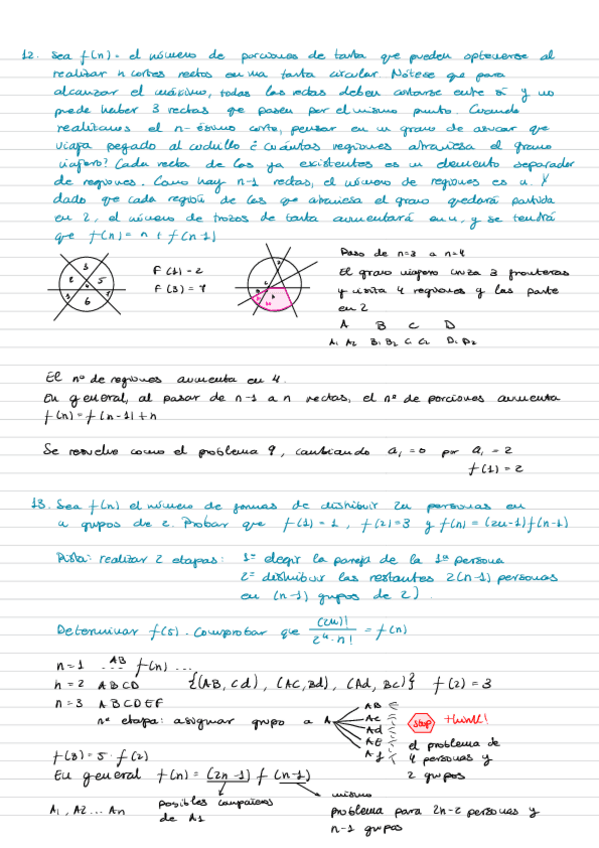 12. Sea f(n) = el número de porciones de tarta que pueden optenerse al
realizar n cortes rectos en una tarta circular. Nótese que para
alcanzar el máximo, todas las rectas deben cortarse entre sí y no
puede haber 3 rectas que pasen por el mismo punto. Cuando
realizamos el n-ésimo corte, pensar en un grano de azucar que
viaja pegado al cuchillo ¿cuántas regiones atraviesa el grano
viajero? Cada recta de las ya existentes es un elemento separador
de regiones. Como hay n-1 rectas, el número de regiones es n. Y
dado que cada región de las que atraviesa el grano quedará partida
en 2, el número de trozos de tarta aumentará en n, y se tendrá
que f(n) = n + f(n-1)
3
2 5
6 7
F(1) = 2
F(3) = 7
Paso de n=3 a n=4
El grano viajero cruza 3 fronteras
y visita 4 regiones y las parte
en 2
A B C D
A1 A2 B1 B2 C1 C2 D1 D2
El nº de regiones aumenta en 4.
En general, al pasar de n-1 a n rectas, el nº de porciones aumenta
f(n) = f(n-1) + n
Se resuelve como el problema 9, cambiando a1 = 0 por a1 = 2
f(1) = 2
13. Sea f(n) el número de formas de distribuir 2n personas en
n grupos de 2. Probar que f(1) = 1, f(2) = 3 y f(n) = (2n-1)f(n-1)
Pista: realizar 2 etapas: 1= elegir la pareja de la 1ª persona
2= distribuir las restantes 2(n-1) personas
en (n-1) grupos de 2)
Determinar f(5). Comprobar que (2n)! / 2^n · n! = f(n)
n=1 AB f(n) ...
n=2 ABCD {(AB, Cd), (AC, Bd), (Ad, Bc)} f(2) = 3
n=3 ABCDEF
nº etapa: asignar grupo a A
AB
Ac
Ad
AE
Af
stop think!
el problema de
4 personas y
2 grupos
f(3) = 5 · f(2)
En general f(n) = (2n-1) f(n-1)
A1, A2 ... An
posibles compañeros
de A1
mismo
problema para 2n-2 personas y
n-1 grupos